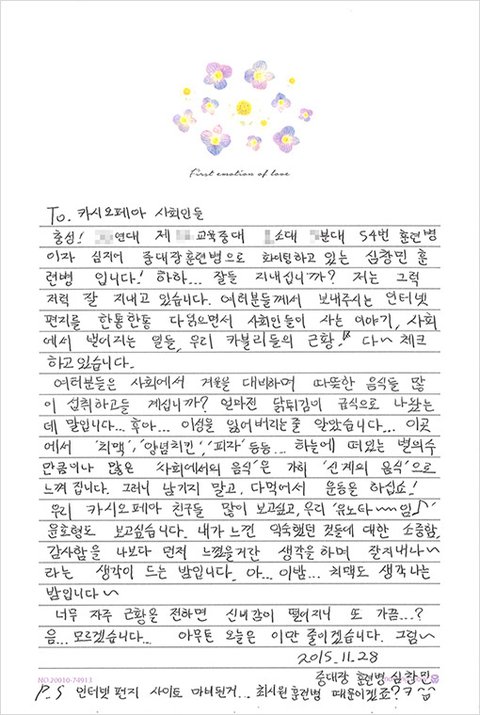 First emotion of love
To. 카시오페아 사회인들
충성! 연대 제 교육중대 소대 분대 54번 훈련병
이자 심지어 중대장훈련병으로 화이팅하고 있는 심창민 훈
련병 입니다! 하하... 잘들 지내십니까? 저는 그럭
저럭 잘 지내고 있습니다. 여러분들께서 보내주시는 인터넷
편지를 한통한통 다읽으면서 사회인들이 사는 이야기, 사회
에서 벌어지는 일들, 우리 카블리들의 근황! 다~ 체크
하고있습니다.
여러분들은 사회에서 겨울을 대비하며 따뜻한 음식들 많
이 섭취하고들 계십니까? 얼마전 닭튀김이 급식으로 나왔는
데 말입니다... 후아... 이성을 잃어버리는줄 알았습니다... 이곳
에서 '치맥', '양념치킨', '피자' 등등... 하늘에 떠있는 별의수
만큼이나 많은 '사회에서의 음식'은 가히 '신계의 음식'으로
느껴 집니다. 그러니 남기지 말고, 다먹어서 운동을 하십쇼!
우리 카시오페아 친구들 많이 보고싶고, 우리 '유노타~~임♪'
윤호형도 보고싶습니다. 내가 느낀 익숙했던 것들에 대한 소중함,
감사함을 나보다 먼저 느꼈을거란 생각을하며 잘지내나~
라는 생각이 드는 밤입니다. 아... 이밤... 치맥도 생각나는
밤입니다~
너무 자주 근황을 전하면 신비감이 떨어지니 또 가끔...?
음... 모르겠습니다... 아무튼 오늘은 이만 줄이겠습니다. 그럼~
2015.11.28
중대장 훈련병 심창민
NO.20010-74913
P.S 인터넷 편지 사이트 마비된거.. 최시원 훈련병 때문이겠죠?ㅋ